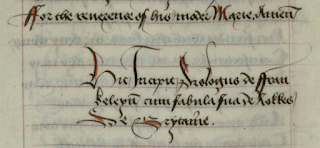 ffor the reuerence of his moder Marie. Amen
Hic Incipit Prologus de ffran
keleyn cum fabula sua de Rokkes
de Brytaine.